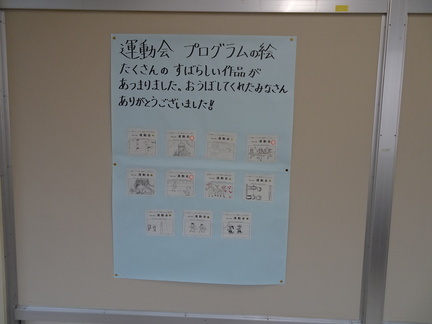 運動会 プログラムの絵
たくさんの すばらしい作品が
あつまりました、おうぼしてくれたみなさん
ありがとうございました!!